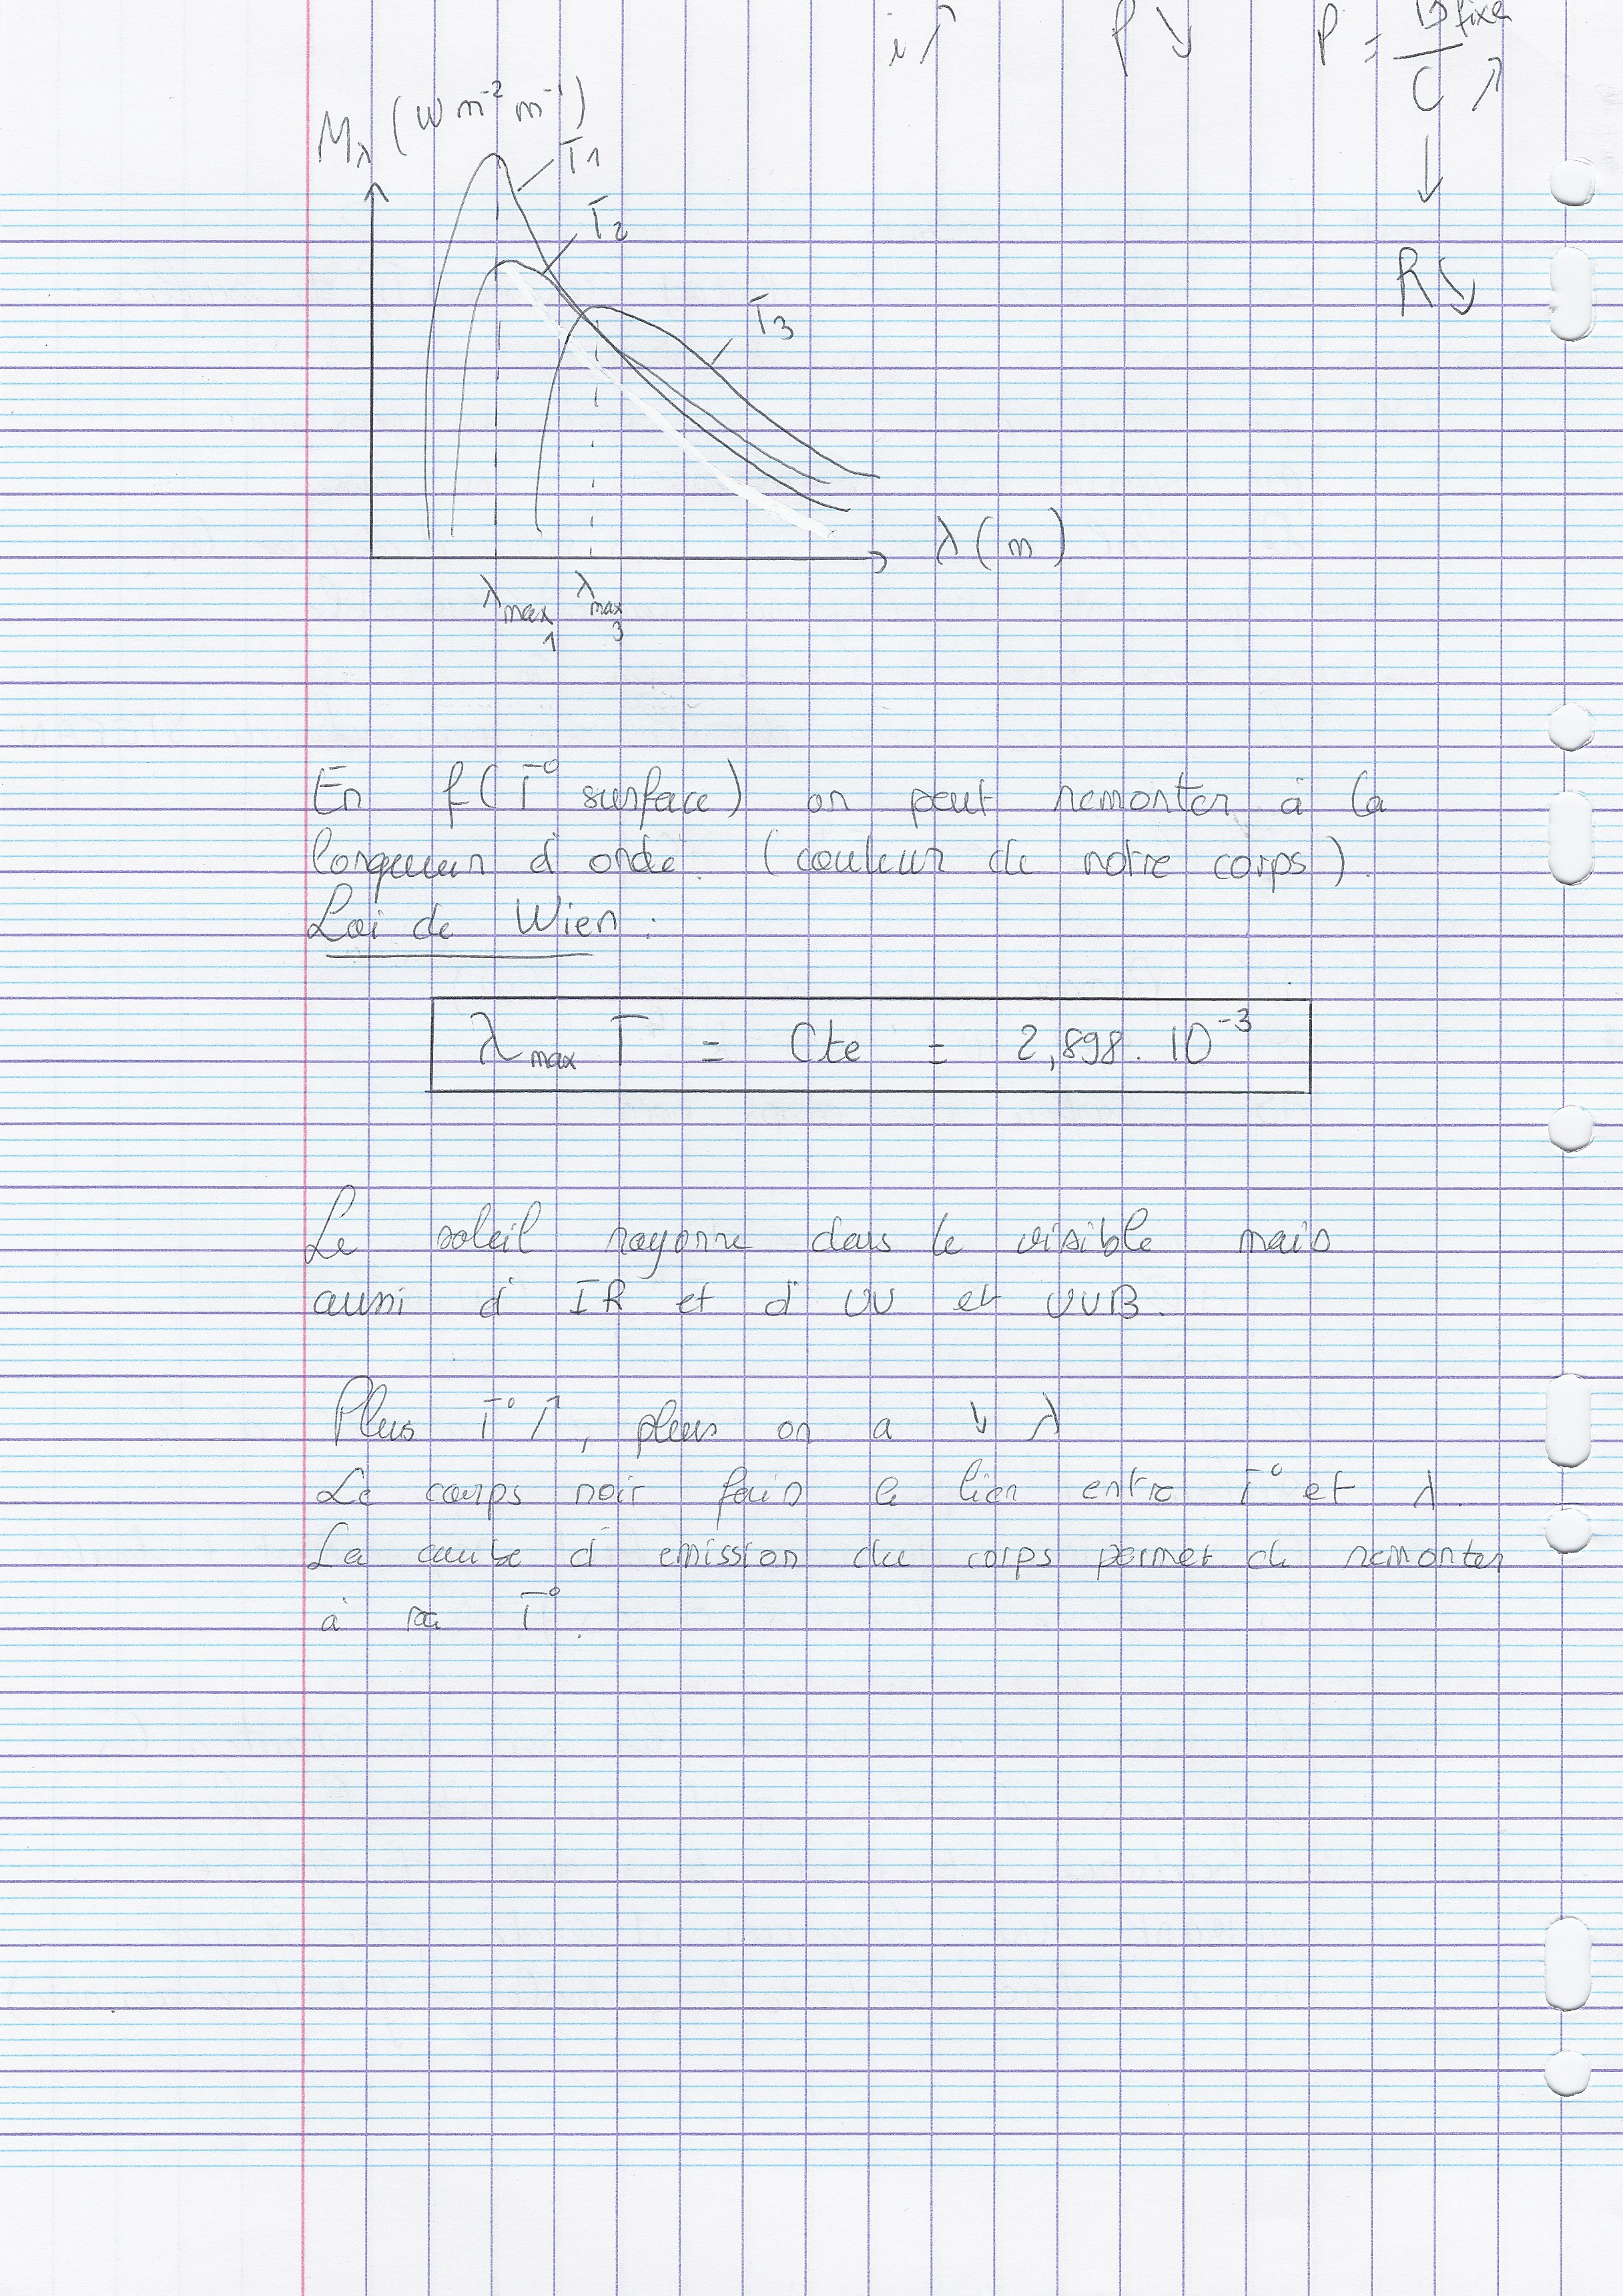 i ↗ P ↘ P = D fixe / C ↗
↓
R ↘
Mλ (W m⁻² m⁻¹)
T1
T2
T3
λ (m)
λmax 1 λmax 3
En f(T° surface) on peut remonter à la
longueur d'onde. (couleur de notre corps).
Loi de Wien :
λmax T = Cte = 2,898. 10⁻³
Le soleil rayonne dans le visible mais
aussi d' IR et d' UV et UVB.
Plus T° ↑, plus on a ↓ λ
Le corps noir fais le lien entre T° et λ.
La courbe d' emission du corps permet de remonter
à sa T°.